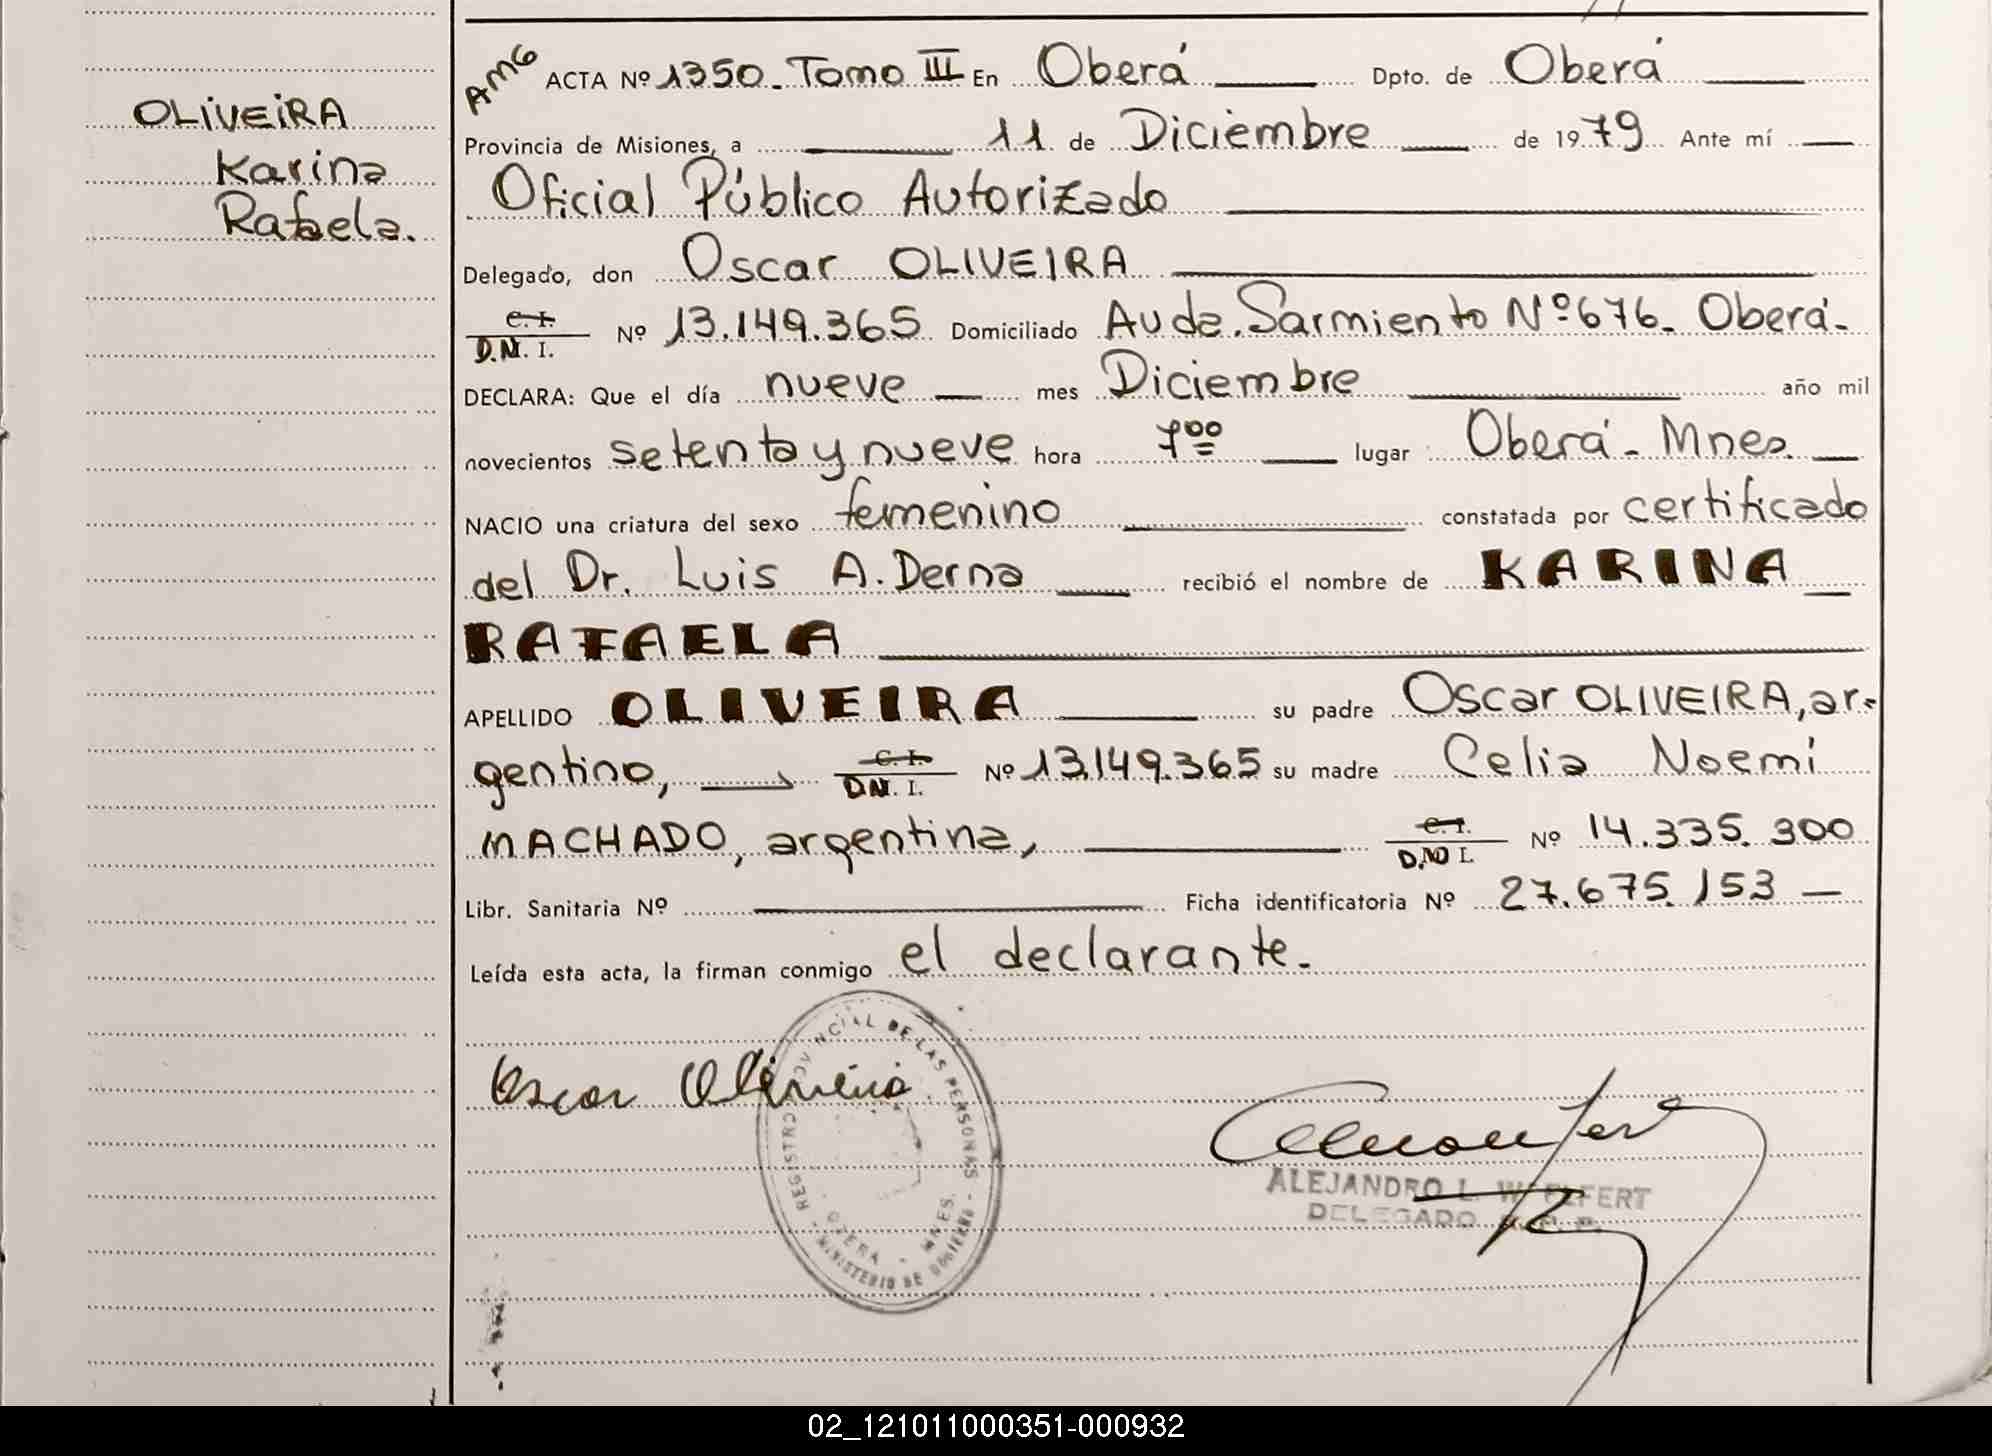 OLIVEIRA
Karina
Rafaela.
AMG
ACTA Nº 1350. Tomo III En Oberá Dpto. de Oberá
Provincia de Misiones, a 11 de Diciembre de 1979 Ante mí
Oficial Público Autorizado
Delegado, don Oscar OLIVEIRA
C. I.
D.N. I. Nº 13.149.365 Domiciliado Avda. Sarmiento Nº 676. Oberá.
DECLARA: Que el día nueve mes Diciembre año mil
novecientos setenta y nueve hora 7⁰⁰ lugar Oberá - Mnes.
NACIO una criatura del sexo femenino constatada por certificado
del Dr. Luis A. Derna recibió el nombre de KARINA
RAFAELA
APELLIDO OLIVEIRA su padre Oscar OLIVEIRA, ar-
gentino, C. I. D.N. I. Nº 13.149.365 su madre Celia Noemí
MACHADO, argentina, C. I. D.N I. Nº 14.335.300
Libr. Sanitaria Nº Ficha identificatoria Nº 27.675.153
Leída esta acta, la firman conmigo el declarante.
Oscar Oliveira
REGISTRO PROVINCIAL DE LAS PERSONAS - MINISTERIO DE GOBIERNO -
OBERA - MNES.
ALEJANDRO L. WELFERT
DELEGADO R. P. P.
02_121011000351-000932